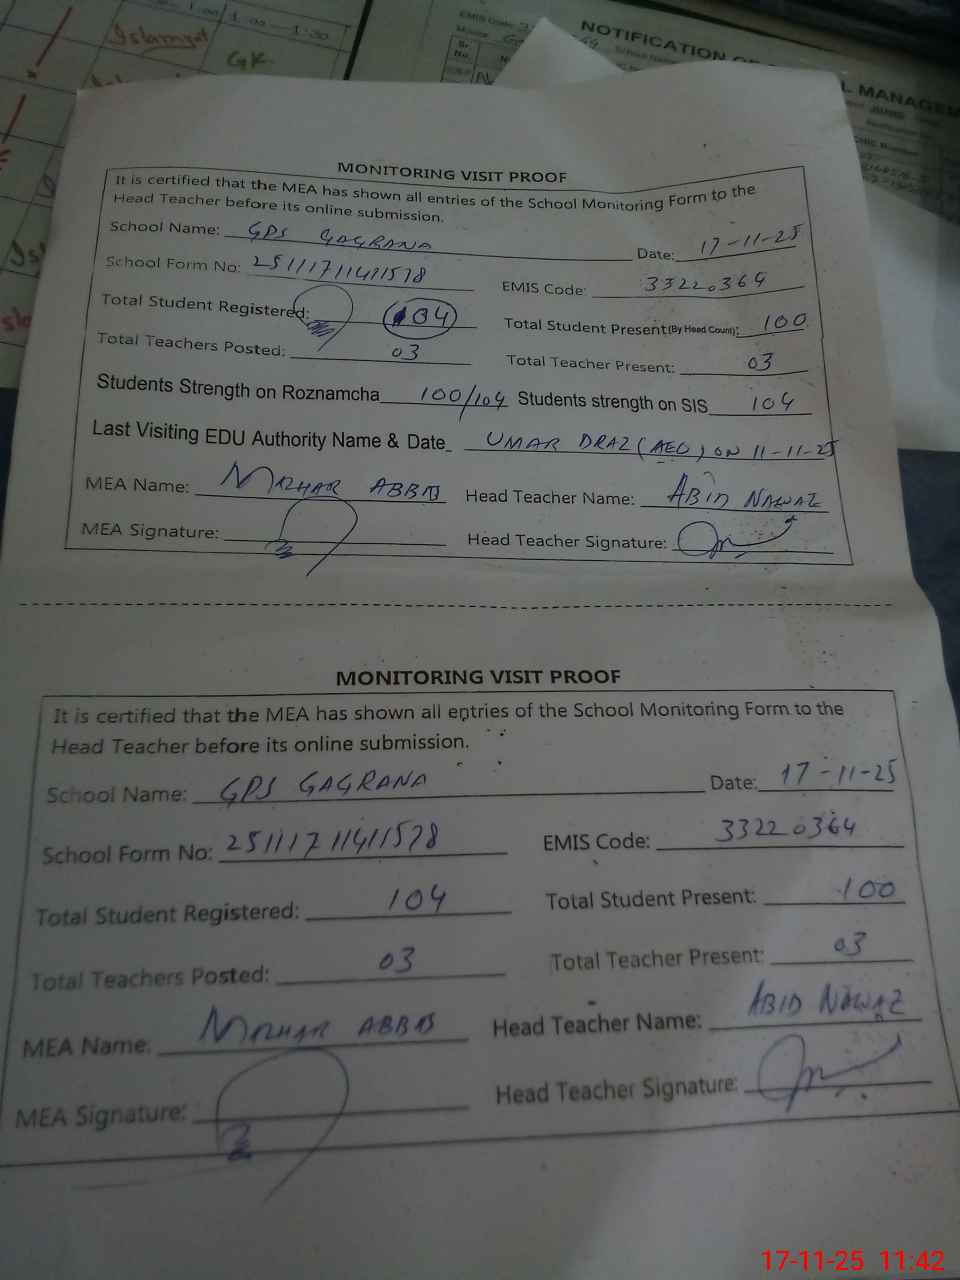 1:00 1:00 - 1:30
Islamyat
GK
EMIS Code:
NOTIFICATION OF
L MANAGEM
Sr.
No.
MONITORING VISIT PROOF
It is certified that the MEA has shown all entries of the School Monitoring Form to the
Head Teacher before its online submission.
School Name: GPS GAGRANA Date: 17-11-25
School Form No: 25111711411578 EMIS Code: 33220364
Total Student Registered: 104 Total Student Present(By Head Count): 100
Total Teachers Posted: 03 Total Teacher Present: 03
Students Strength on Roznamcha 100/104 Students strength on SIS 104
Last Visiting EDU Authority Name & Date UMAR DRAZ (AEO) ON 11-11-25
MEA Name: MAZHAR ABBAS Head Teacher Name: ABID NAWAZ
MEA Signature: Head Teacher Signature:
MONITORING VISIT PROOF
It is certified that the MEA has shown all entries of the School Monitoring Form to the
Head Teacher before its online submission.
School Name: GPS GAGRANA Date: 17-11-25
School Form No: 25111711411578 EMIS Code: 33220364
Total Student Registered: 104 Total Student Present: 100
Total Teachers Posted: 03 Total Teacher Present: 03
MEA Name: MAZHAR ABBAS Head Teacher Name: ABID NAWAZ
MEA Signature: Head Teacher Signature:
17-11-25 11:42